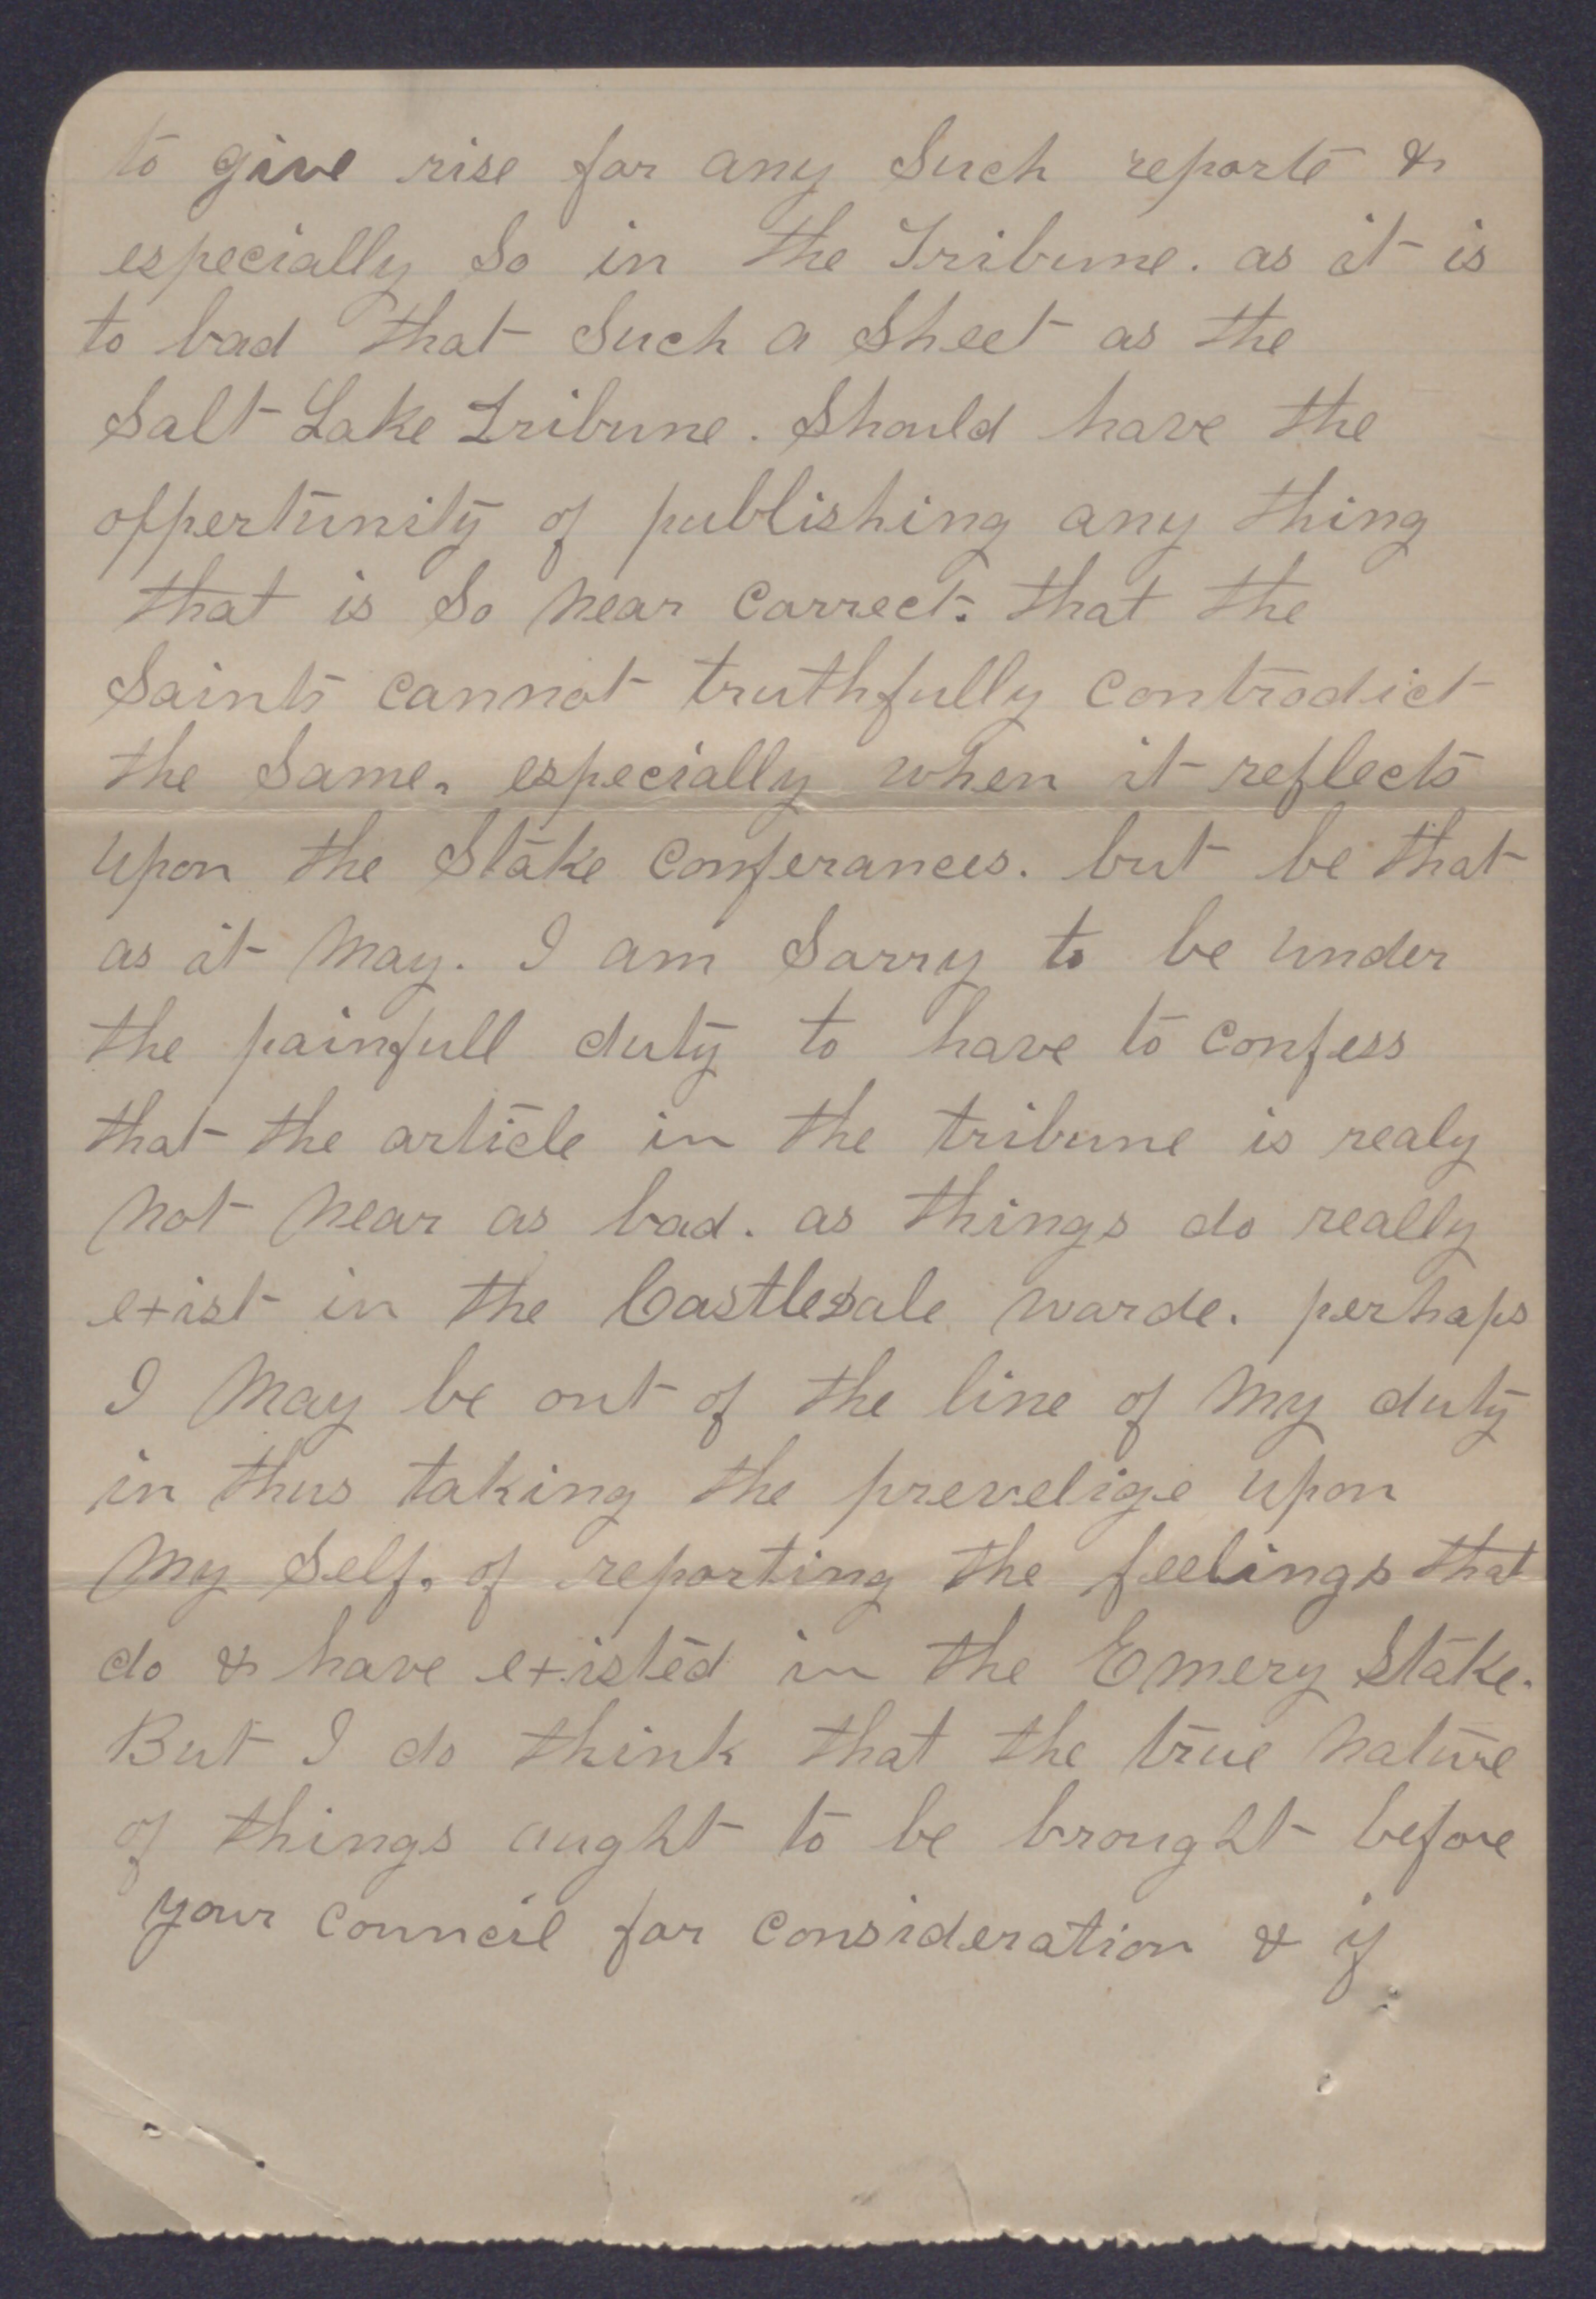 to give rise for any Such reports &
especially So in the Tribune. as it is
to bad that Such a Sheet as the
Salt Lake Tribune. Should have the
oppertunity of publishing any thing
that is So near Correct. that the
Saints cannot truthfully Contradict
the Same. especially when it reflects
upon the Stake Conferances. but be that
as it may. I am Sorry to be under
the painfull duty to have to Confess
that the article in the tribune is realy
not near as bad. as things do really
exist in the Castledale warde. perhaps
I may be out of the line of my duty
in thus taking the prevelige upon
my Self. of reporting the feelings that
do & have existed in the Emery Stake.
But I do think that the true nature
of things aught to be brought before
your Council for Consideration & if